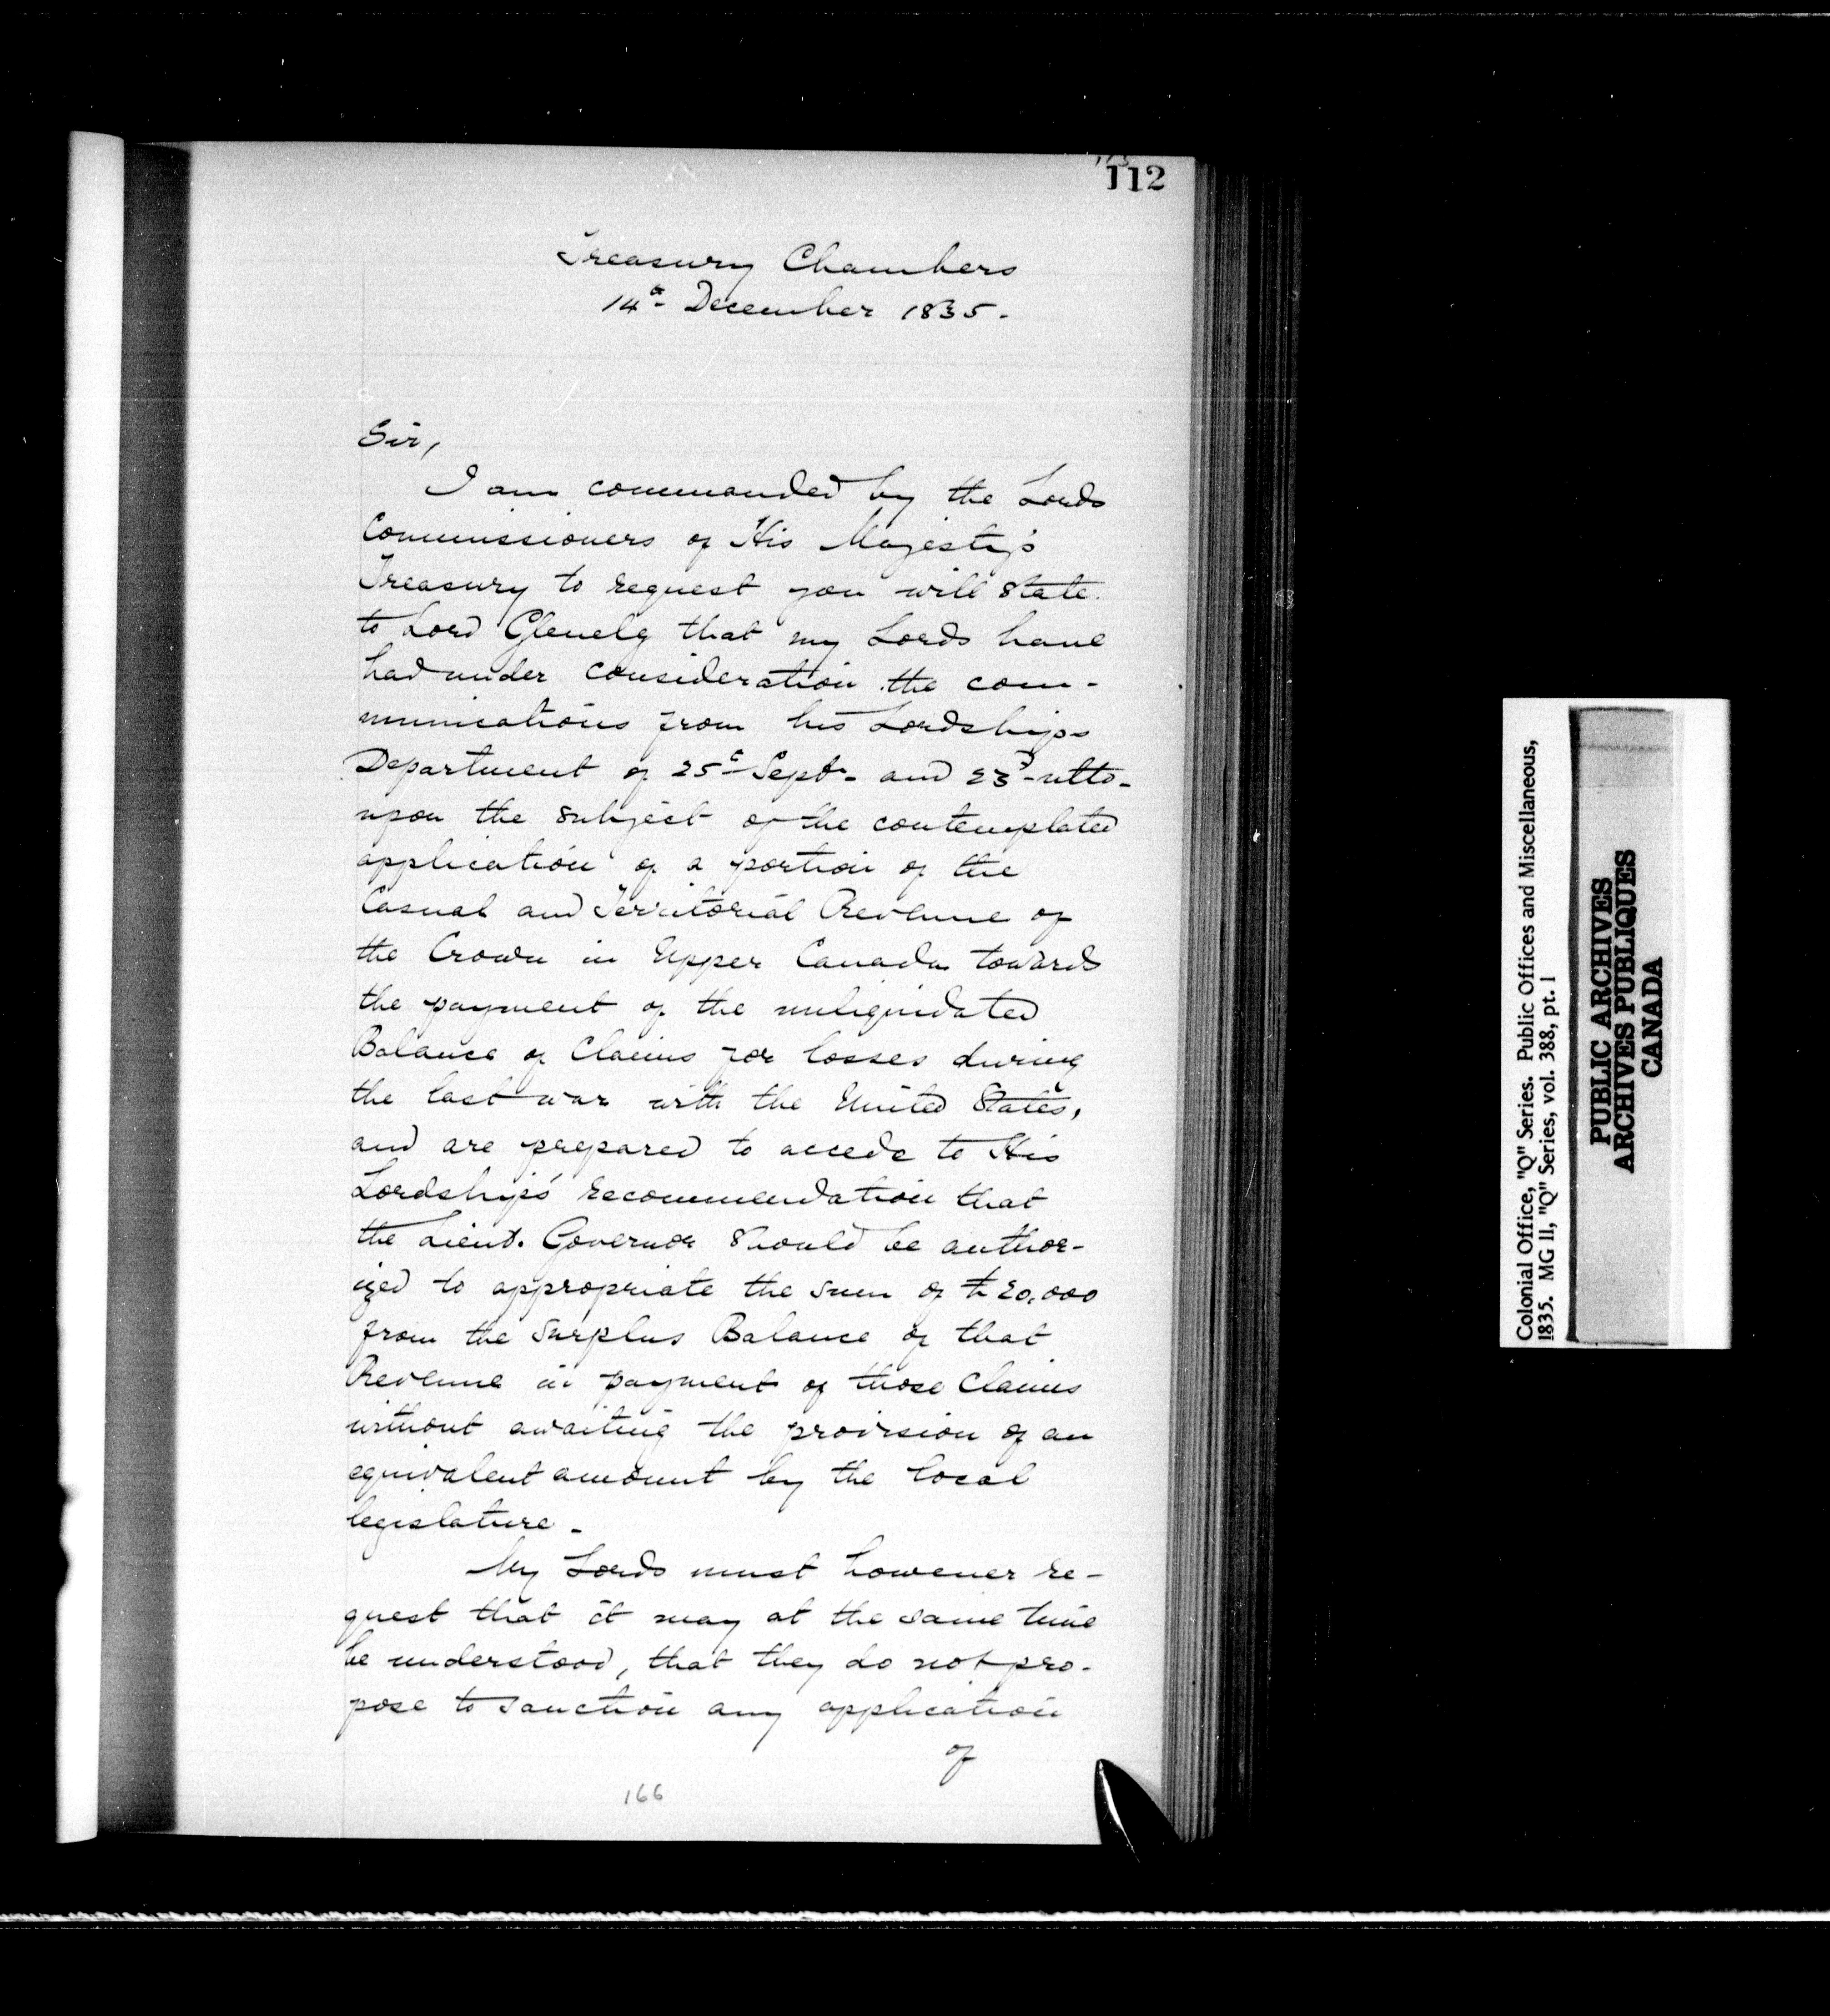 112
Treasury Chambers
14th December 1835.
Sir,
I am commanded by the Lords
Commissioners of His Majesty's
Treasury to request you will state
to Lord Glenelg that my Lords have
had under consideration the com-
munications from his Lordships
Department of 25th Septr. and 23d ulto.
upon the subject of the contemplated
application of a portion of the
Casual and Territorial Revenue of
the Crown in Upper Canada towards
the payment of the unliquidated
Balance of Claims for losses during
the last war with the United States,
and are prepared to accede to His
Lordship's recommendation that
the Lieut. Governor should be author-
ized to appropriate the sum of £20,000
from the Surplus Balance of that
Revenue in payment of those Claims
without awaiting the provision of an
equivalent amount by the local
legislature.
My Lords must however re-
quest that it may at the same time
be understood, that they do not pro-
pose to sanction any application
of
166
Colonial Office, "Q" Series. Public Offices and Miscellaneous,
1835. MG 11, "Q" Series, vol. 388, pt. 1
PUBLIC ARCHIVES
ARCHIVES PUBLIQUES
CANADA